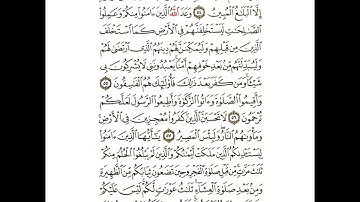 إِلَّا ٱلْبَلَٰغُ ٱلْمُبِينُ ٥٤ وَعَدَ ٱللَّهُ ٱلَّذِينَ ءَامَنُوا۟ مِنكُمْ وَعَمِلُوا۟
ٱلصَّٰلِحَٰتِ لَيَسْتَخْلِفَنَّهُمْ فِى ٱلْأَرْضِ كَمَا ٱسْتَخْلَفَ
ٱلَّذِينَ مِن قَبْلِهِمْ وَلَيُمَكِّنَنَّ لَهُمْ دِينَهُمُ ٱلَّذِى ٱرْتَضَىٰ لَهُمْ
وَلَيُبَدِّلَنَّهُم مِّنۢ بَعْدِ خَوْفِهِمْ أَمْنًا يَعْبُدُونَنِى لَا يُشْرِكُونَ بِى
شَيْـًٔا وَمَن كَفَرَ بَعْدَ ذَٰلِكَ فَأُو۟لَٰٓئِكَ هُمُ ٱلْفَٰسِقُونَ ٥٥
وَأَقِيمُوا۟ ٱلصَّلَوٰةَ وَءَاتُوا۟ ٱلزَّكَوٰةَ وَأَطِيعُوا۟ ٱلرَّسُولَ لَعَلَّكُمْ
تُرْحَمُونَ ٥٦ لَا تَحْسَبَنَّ ٱلَّذِينَ كَفَرُوا۟ مُعْجِزِينَ فِى ٱلْأَرْضِ
وَمَأْوَىٰهُمُ ٱلنَّارُ وَلَبِئْسَ ٱلْمَصِيرُ ٥٧ يَٰٓأَيُّهَا ٱلَّذِينَ ءَامَنُوا۟
لِيَسْتَـْٔذِنكُمُ ٱلَّذِينَ مَلَكَتْ أَيْمَٰنُكُمْ وَٱلَّذِينَ لَمْ يَبْلُغُوا۟ ٱلْحُلُمَ مِنكُمْ
ثَلَٰثَ مَرَّٰتٍ مِّن قَبْلِ صَلَوٰةِ ٱلْفَجْرِ وَحِينَ تَضَعُونَ ثِيَابَكُم مِّنَ ٱلظَّهِيرَةِ
وَمِنۢ بَعْدِ صَلَوٰةِ ٱلْعِشَآءِ ثَلَٰثُ عَوْرَٰتٍ لَّكُمْ لَيْسَ عَلَيْكُمْ